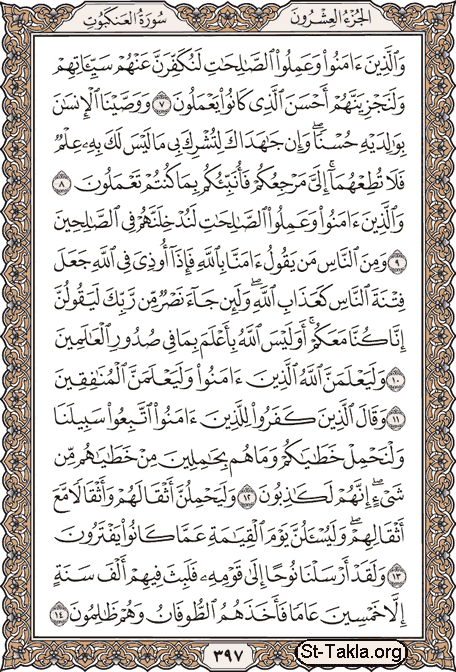 الجزء العشرون سورة العنكبوت
وَالَّذِينَ ءَامَنُوا۟ وَعَمِلُوا۟ الصَّٰلِحَٰتِ لَنُكَفِّرَنَّ عَنْهُمْ سَيِّـَٔاتِهِمْ
وَلَنَجْزِيَنَّهُمْ أَحْسَنَ الَّذِى كَانُوا۟ يَعْمَلُونَ ٧ وَوَصَّيْنَا الْإِنسَٰنَ
بِوَٰلِدَيْهِ حُسْنًا ۖ وَإِن جَٰهَدَاكَ لِتُشْرِكَ بِى مَا لَيْسَ لَكَ بِهِۦ عِلْمٌ
فَلَا تُطِعْهُمَا ۚ إِلَىَّ مَرْجِعُكُمْ فَأُنَبِّئُكُم بِمَا كُنتُمْ تَعْمَلُونَ ٨
وَالَّذِينَ ءَامَنُوا۟ وَعَمِلُوا۟ الصَّٰلِحَٰتِ لَنُدْخِلَنَّهُمْ فِى الصَّٰلِحِينَ
٩ وَمِنَ النَّاسِ مَن يَقُولُ ءَامَنَّا بِاللَّهِ فَإِذَآ أُوذِىَ فِى اللَّهِ جَعَلَ
فِتْنَةَ النَّاسِ كَعَذَابِ اللَّهِ ۖ وَلَئِن جَآءَ نَصْرٌ مِّن رَّبِّكَ لَيَقُولُنَّ
إِنَّا كُنَّا مَعَكُمْ ۚ أَوَلَيْسَ اللَّهُ بِأَعْلَمَ بِمَا فِى صُدُورِ الْعَٰلَمِينَ
١٠ وَلَيَعْلَمَنَّ اللَّهُ الَّذِينَ ءَامَنُوا۟ وَلَيَعْلَمَنَّ الْمُنَٰفِقِينَ
١١ وَقَالَ الَّذِينَ كَفَرُوا۟ لِلَّذِينَ ءَامَنُوا۟ اتَّبِعُوا۟ سَبِيلَنَا
وَلْنَحْمِلْ خَطَٰيَٰكُمْ وَمَا هُم بِحَٰمِلِينَ مِنْ خَطَٰيَٰهُم مِّن
شَىْءٍ ۖ إِنَّهُمْ لَكَٰذِبُونَ ١٢ وَلَيَحْمِلُنَّ أَثْقَالَهُمْ وَأَثْقَالًا مَّعَ
أَثْقَالِهِمْ ۖ وَلَيُسْـَٔلُنَّ يَوْمَ الْقِيَٰمَةِ عَمَّا كَانُوا۟ يَفْتَرُونَ
١٣ وَلَقَدْ أَرْسَلْنَا نُوحًا إِلَىٰ قَوْمِهِۦ فَلَبِثَ فِيهِمْ أَلْفَ سَنَةٍ
إِلَّا خَمْسِينَ عَامًا فَأَخَذَهُمُ الطُّوفَانُ وَهُمْ ظَٰلِمُونَ ١٤
٣٩٧
St-Takla.org